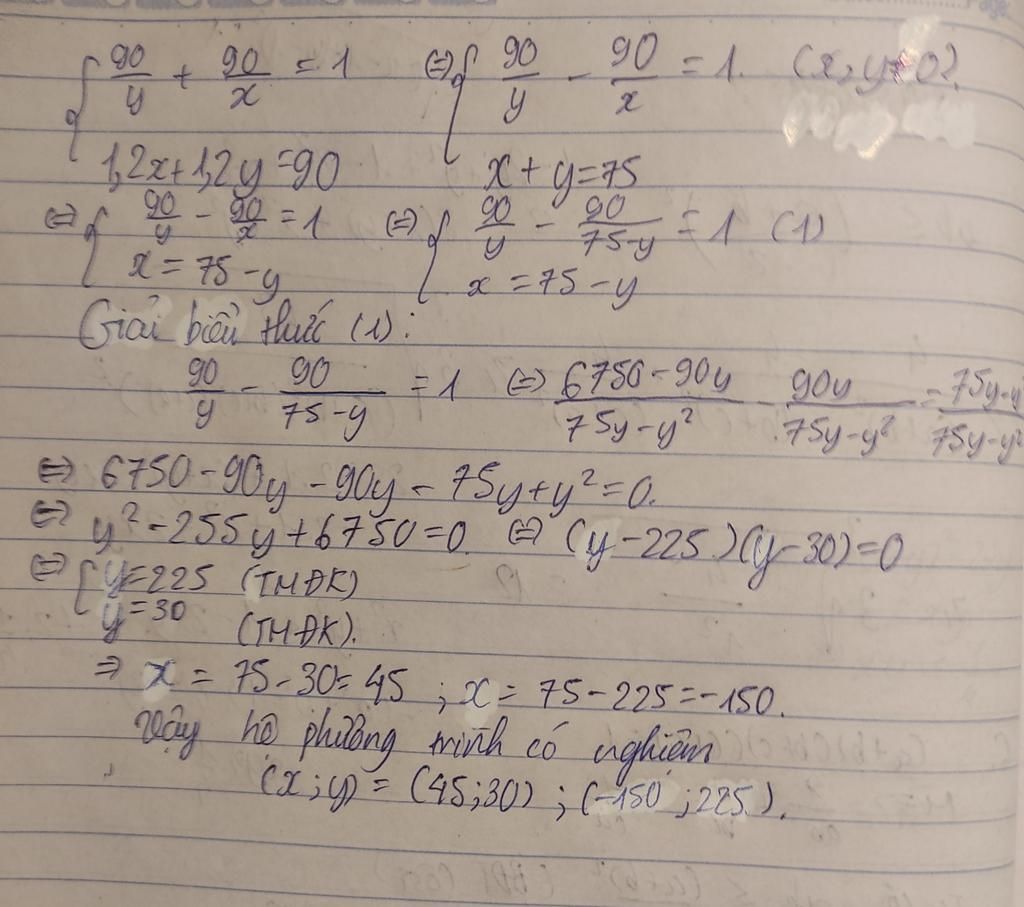 { 90/y + 90/x = 1 ⇔ { 90/y - 90/x = 1. (x, y ≠ 0).
1,2x + 1,2y = 90 x + y = 75
⇔ { 90/y - 90/x = 1 ⇔ { 90/y - 90/(75-y) = 1 (1)
x = 75 - y x = 75 - y
Giải biểu thức (1):
90/y - 90/(75-y) = 1 ⇔ (6750-90y)/(75y-y²) - 90y/(75y-y²) = (75y-y)/(75y-y²)
⇔ 6750 - 90y - 90y - 75y + y² = 0.
⇔ y² - 255y + 6750 = 0 ⇔ (y - 225)(y - 30) = 0
⇔ [ y = 225 (TMĐK)
y = 30 (TMĐK).
⇒ x = 75 - 30 = 45 ; x = 75 - 225 = -150.
Vậy hệ phương trình có nghiệm
(x; y) = (45; 30) ; (-150 ; 225).